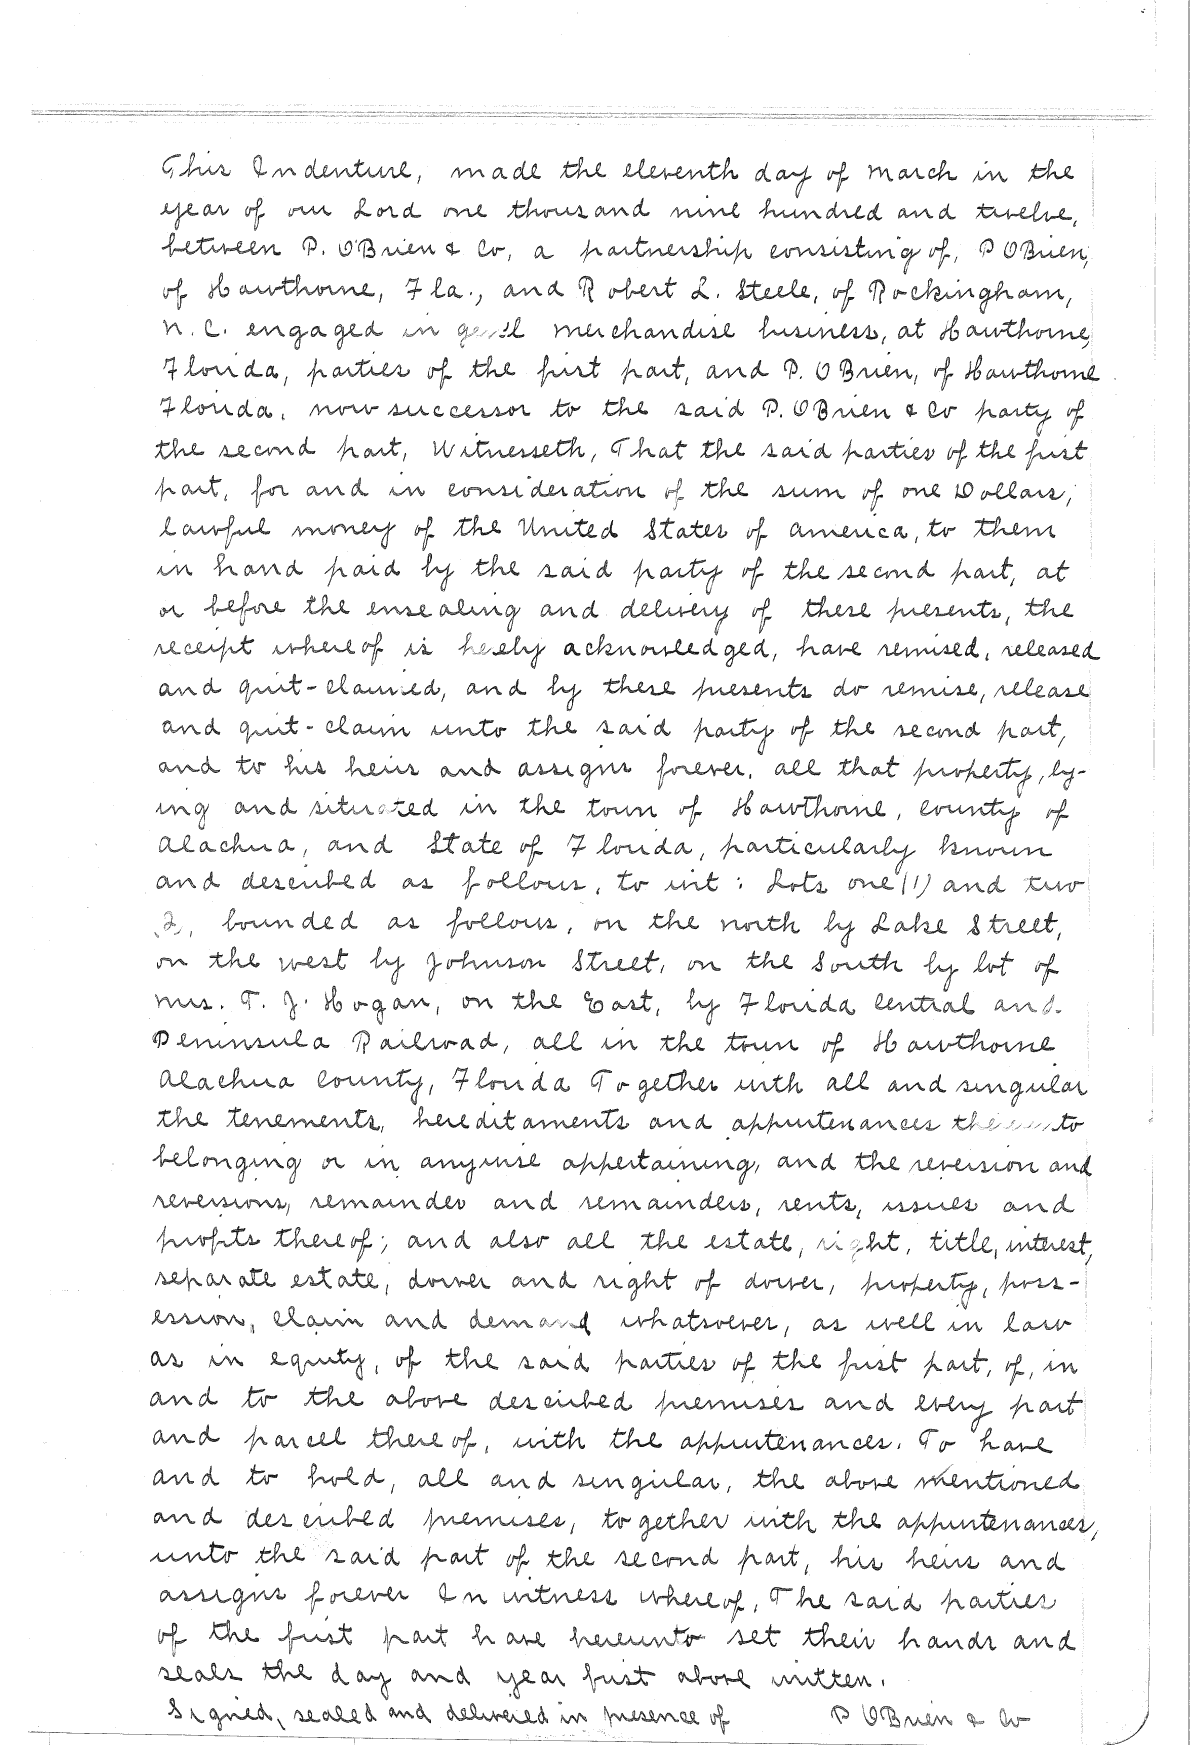 This Indenture, made the eleventh day of March in the
year of our Lord one thousand nine hundred and twelve,
between P. O'Brien & Co, a partnership consisting of, P O'Brien,
of Hawthorne, Fla., and Robert L. Steele, of Rockingham,
N. C. engaged in merchandise business, at Hawthorne,
Florida, parties of the first part, and P. O'Brien, of Hawthorne
Florida, now successor to the said P. O'Brien & Co party of
the second part, Witnesseth, That the said parties of the first
part, for and in consideration of the sum of one Dollars,
lawful money of the United States of america, to them
in hand paid by the said party of the second part, at
or before the ensealing and delivery of these presents, the
receipt whereof is hereby acknowledged, have remised, released
and quit-claimed, and by these presents do remise, release
and quit-claim unto the said party of the second part,
and to his heirs and assigns forever, all that property, ly-
ing and situated in the town of Hawthorne, county of
Alachua, and State of Florida, particularly known
and described as follows, to wit: Lots one (1) and two
2, bounded as follows, on the north by Lake Street,
on the west by Johnson Street, on the South by lot of
Mrs. T. J. Hogan, on the East, by Florida Central and
Peninsula Railroad, all in the town of Hawthorne
Alachua County, Florida Together with all and singular
the tenements, hereditaments and appurtenances thereunto
belonging or in anywise appertaining, and the reversion and
reversions, remainder and remainders, rents, issues and
profits thereof; and also all the estate, right, title, interest,
separate estate, dower and right of dower, property, poss-
ession, claim and demand whatsoever, as well in law
as in equity, of the said parties of the first part, of, in
and to the above described premises and every part
and parcel thereof, with the appurtenances. To have
and to hold, all and singular, the above mentioned
and described premises, together with the appurtenances,
unto the said part of the second part, his heirs and
assigns forever In witness whereof, The said parties
of the first part have hereunto set their hands and
seals the day and year first above written.
Signed, sealed and delivered in presence of P O'Brien & Co